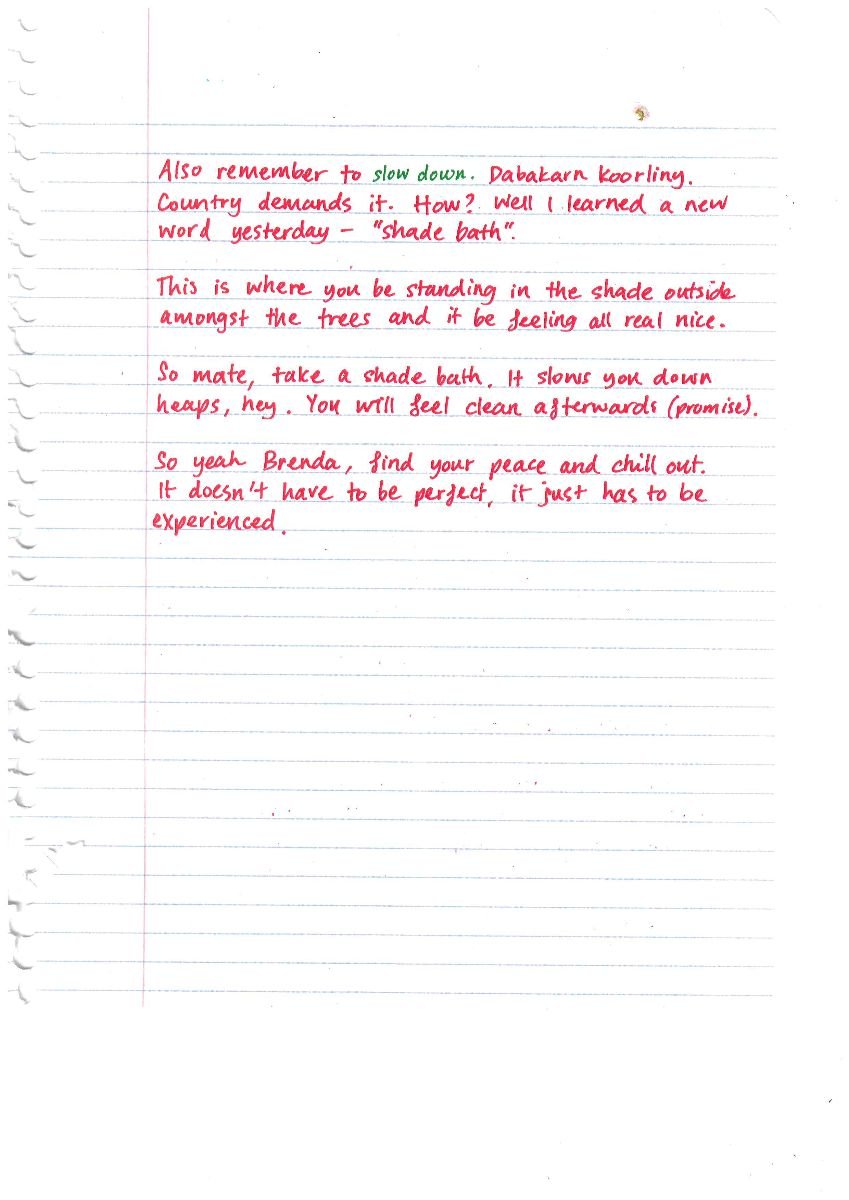 Also remember to slow down. Dabakarn Koorling.
Country demands it. How? Well I learned a new
word yesterday - "shade bath".
This is where you be standing in the shade outside
amongst the trees and it be feeling all real nice.
So mate, take a shade bath. It slows you down
heaps, hey. You will feel clean afterwards (promise).
So yeah Brenda, find your peace and chill out.
It doesn't have to be perfect, it just has to be
experienced.